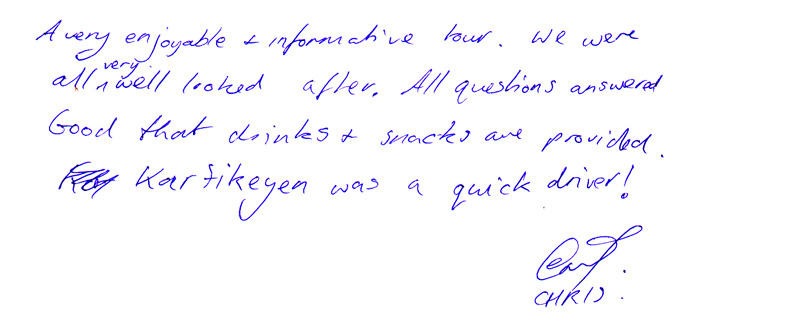 A very enjoyable + informative tour. We were
all very well looked after. All questions answered
Good that drinks + snacks are provided.
Kartikeyen was a quick driver!
CHRIS.